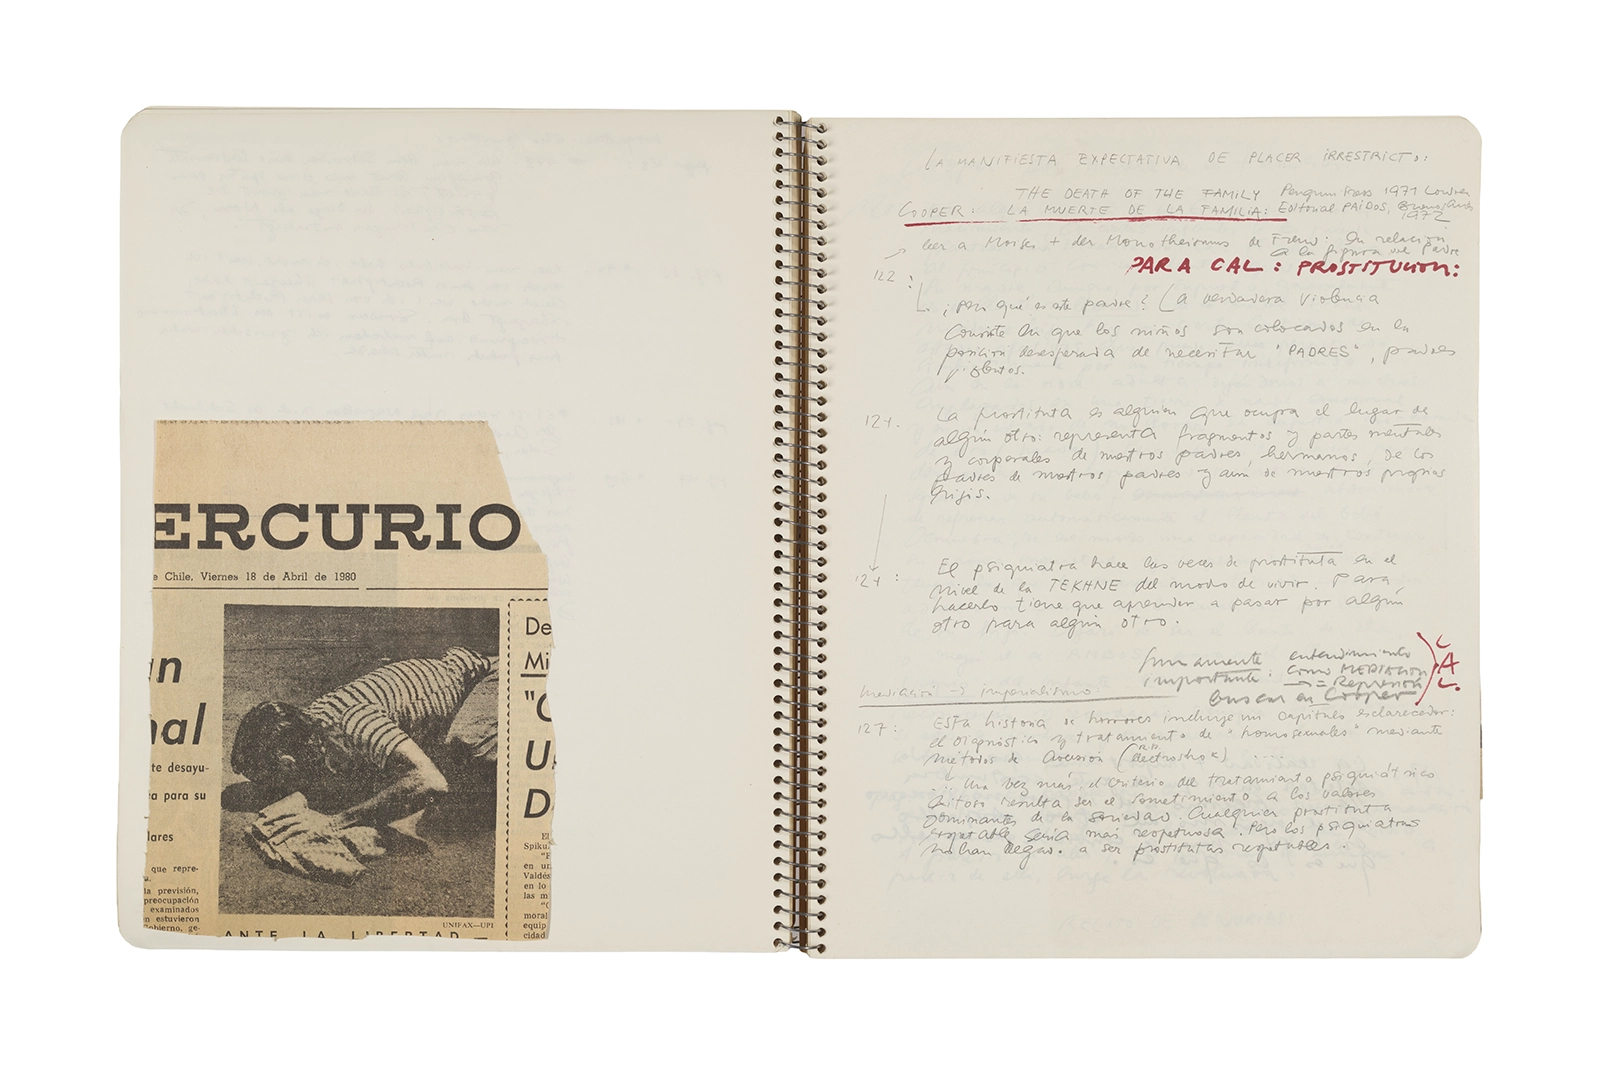 ERCURIO
e Chile, Viernes 18 de Abril de 1980
an
nal
te desayu-
a para su
lares
que repre-
a.
la previsión,
preocupación
examinados
n estuvieron
obierno, ge-
De
Mi
"C
U
D
El
Spiku
"P
en un
Valdés
en lo
las m
"C
moral
equip
cidad
UNIFAX—UPI
ANTE LA LIBERTAD —
LA MANIFIESTA EXPECTATIVA DE PLACER IRRESTRICTO:
THE DEATH OF THE FAMILY Penguin Press 1971 Londres
COOPER: LA MUERTE DE LA FAMILIA: Editorial PAIDOS, Buenos Aires
1972
leer a Moises + der Monotheismus de Freud: en relación
a la figura del Padre
PARA CAL: PROSTITUCION:
122:
¿Pero qué es este padre? La verdadera violencia
consiste en que los niños son colocados en la
posición desesperada de necesitar "PADRES", padres
124. La prostituta es alguien que ocupa el lugar de
algún otro: representa fragmentos y partes mentales
y corporales de nuestros padres, hermanos, de los
padres de nuestros padres y aún de nuestros propios
hijos.
124: El psiquiatra hace las veces de prostituta en el
nivel de la TEKHNE del modo de vivir. Para
hacerlo tiene que aprender a pasar por algún
otro para algún otro.
Sumamente importante: entendimiento
como MEDIACION
→ = Represión
buscar en Cooper
CAL.
mediación → imperialismo:
127: Esta historia de horrores incluye un capítulo esclarecedor:
el diagnóstico y tratamiento de "homosexuales" mediante
métodos de aversión (electroshok) ....
... Una vez más, el criterio del tratamiento psiquiátrico
exitoso resulta ser el sometimiento a los valores
dominantes de la sociedad. Cualquier prostituta
respetable sería más respetuosa. Pero los psiquiatras
no han llegado a ser prostitutas respetables.